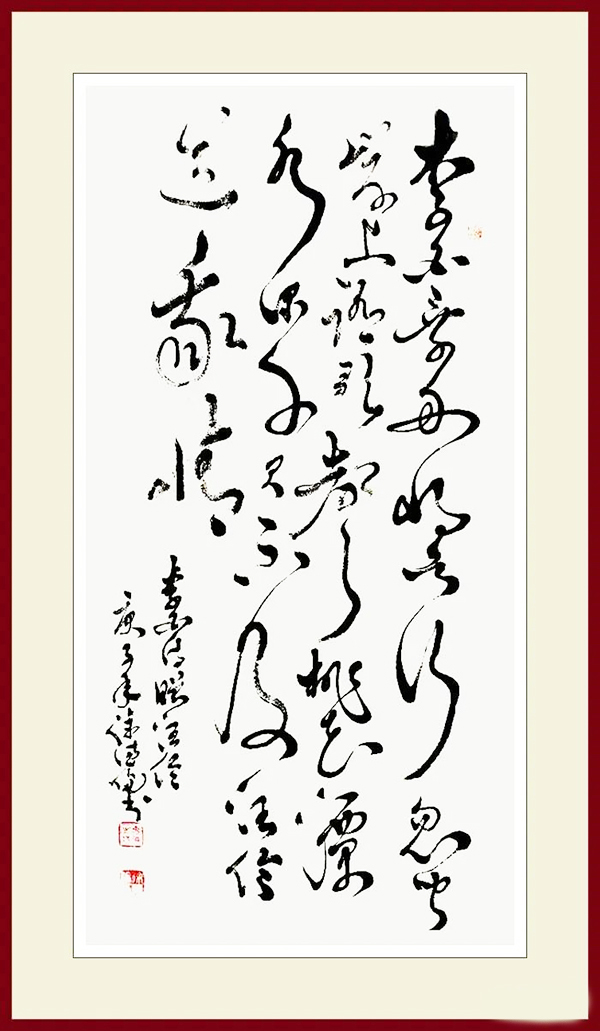 李白乘舟将欲行忽闻
岸上踏歌声桃花潭
水深千尺不及汪伦
送我情
李白诗赠汪伦
庚子年书